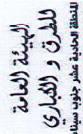 الهيئة العامة
للطرق و الكباري
المنطقة الحادية عشر جنوب سيناء